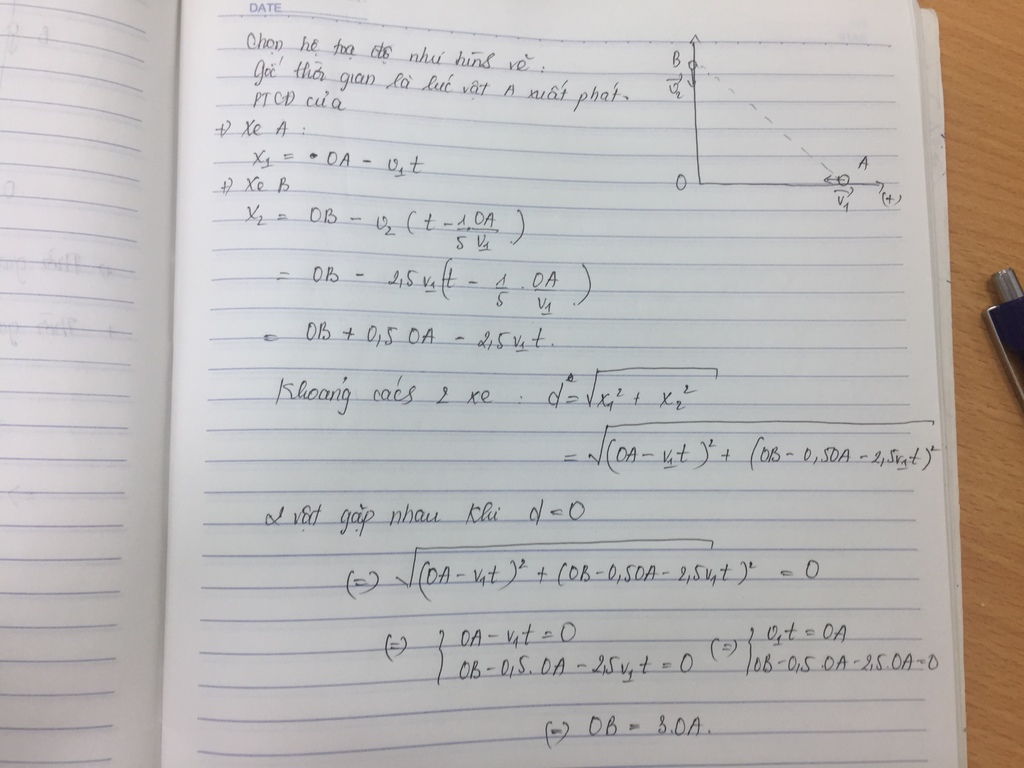 DATE
Chọn hệ toạ độ như hình vẽ.
Gốc thời gian là lúc vật A xuất phát.
PTCĐ của
+) Xe A :
x₁ = OA - v₁t
+) Xe B
x₂ = OB - v₂ (t - 1/5 . OA/v₁)
= OB - 2,5v₁(t - 1/5 . OA/v₁)
= OB + 0,5 OA - 2,5v₁t.
Khoảng cách 2 xe : d = √(x₁² + x₂²)
= √((OA - v₁t)² + (OB - 0,5OA - 2,5v₁t)²)
2 vật gặp nhau khi d = 0
(=) √((OA - v₁t)² + (OB - 0,5OA - 2,5v₁t)²) = 0
(=) { OA - v₁t = 0 (=) { v₁t = OA
OB - 0,5. OA - 2,5v₁t = 0 OB - 0,5 OA - 2,5. OA = 0
(=) OB = 3.OA.
B
v₂
A
O
v₁
(+)